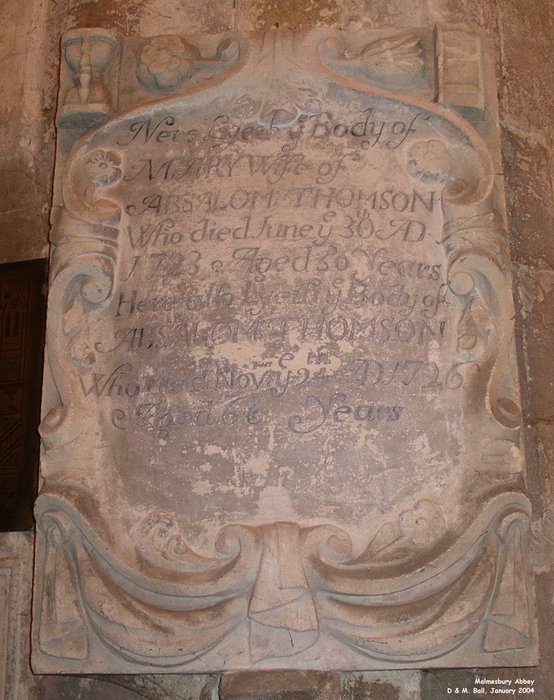 Here Lyeth yᵉ Body of
MARY Wife of
ABSALOM THOMSON
Who died June yᵉ 30ᵗʰ AD
1723 Aged Years
Here also Lyeth yᵉ Body of
ABSALOM THOMSON
Who died Nov yᵉ 24ᵗʰ AD 1726
Aged Years
Malmesbury Abbey
D & M. Ball, January 2004